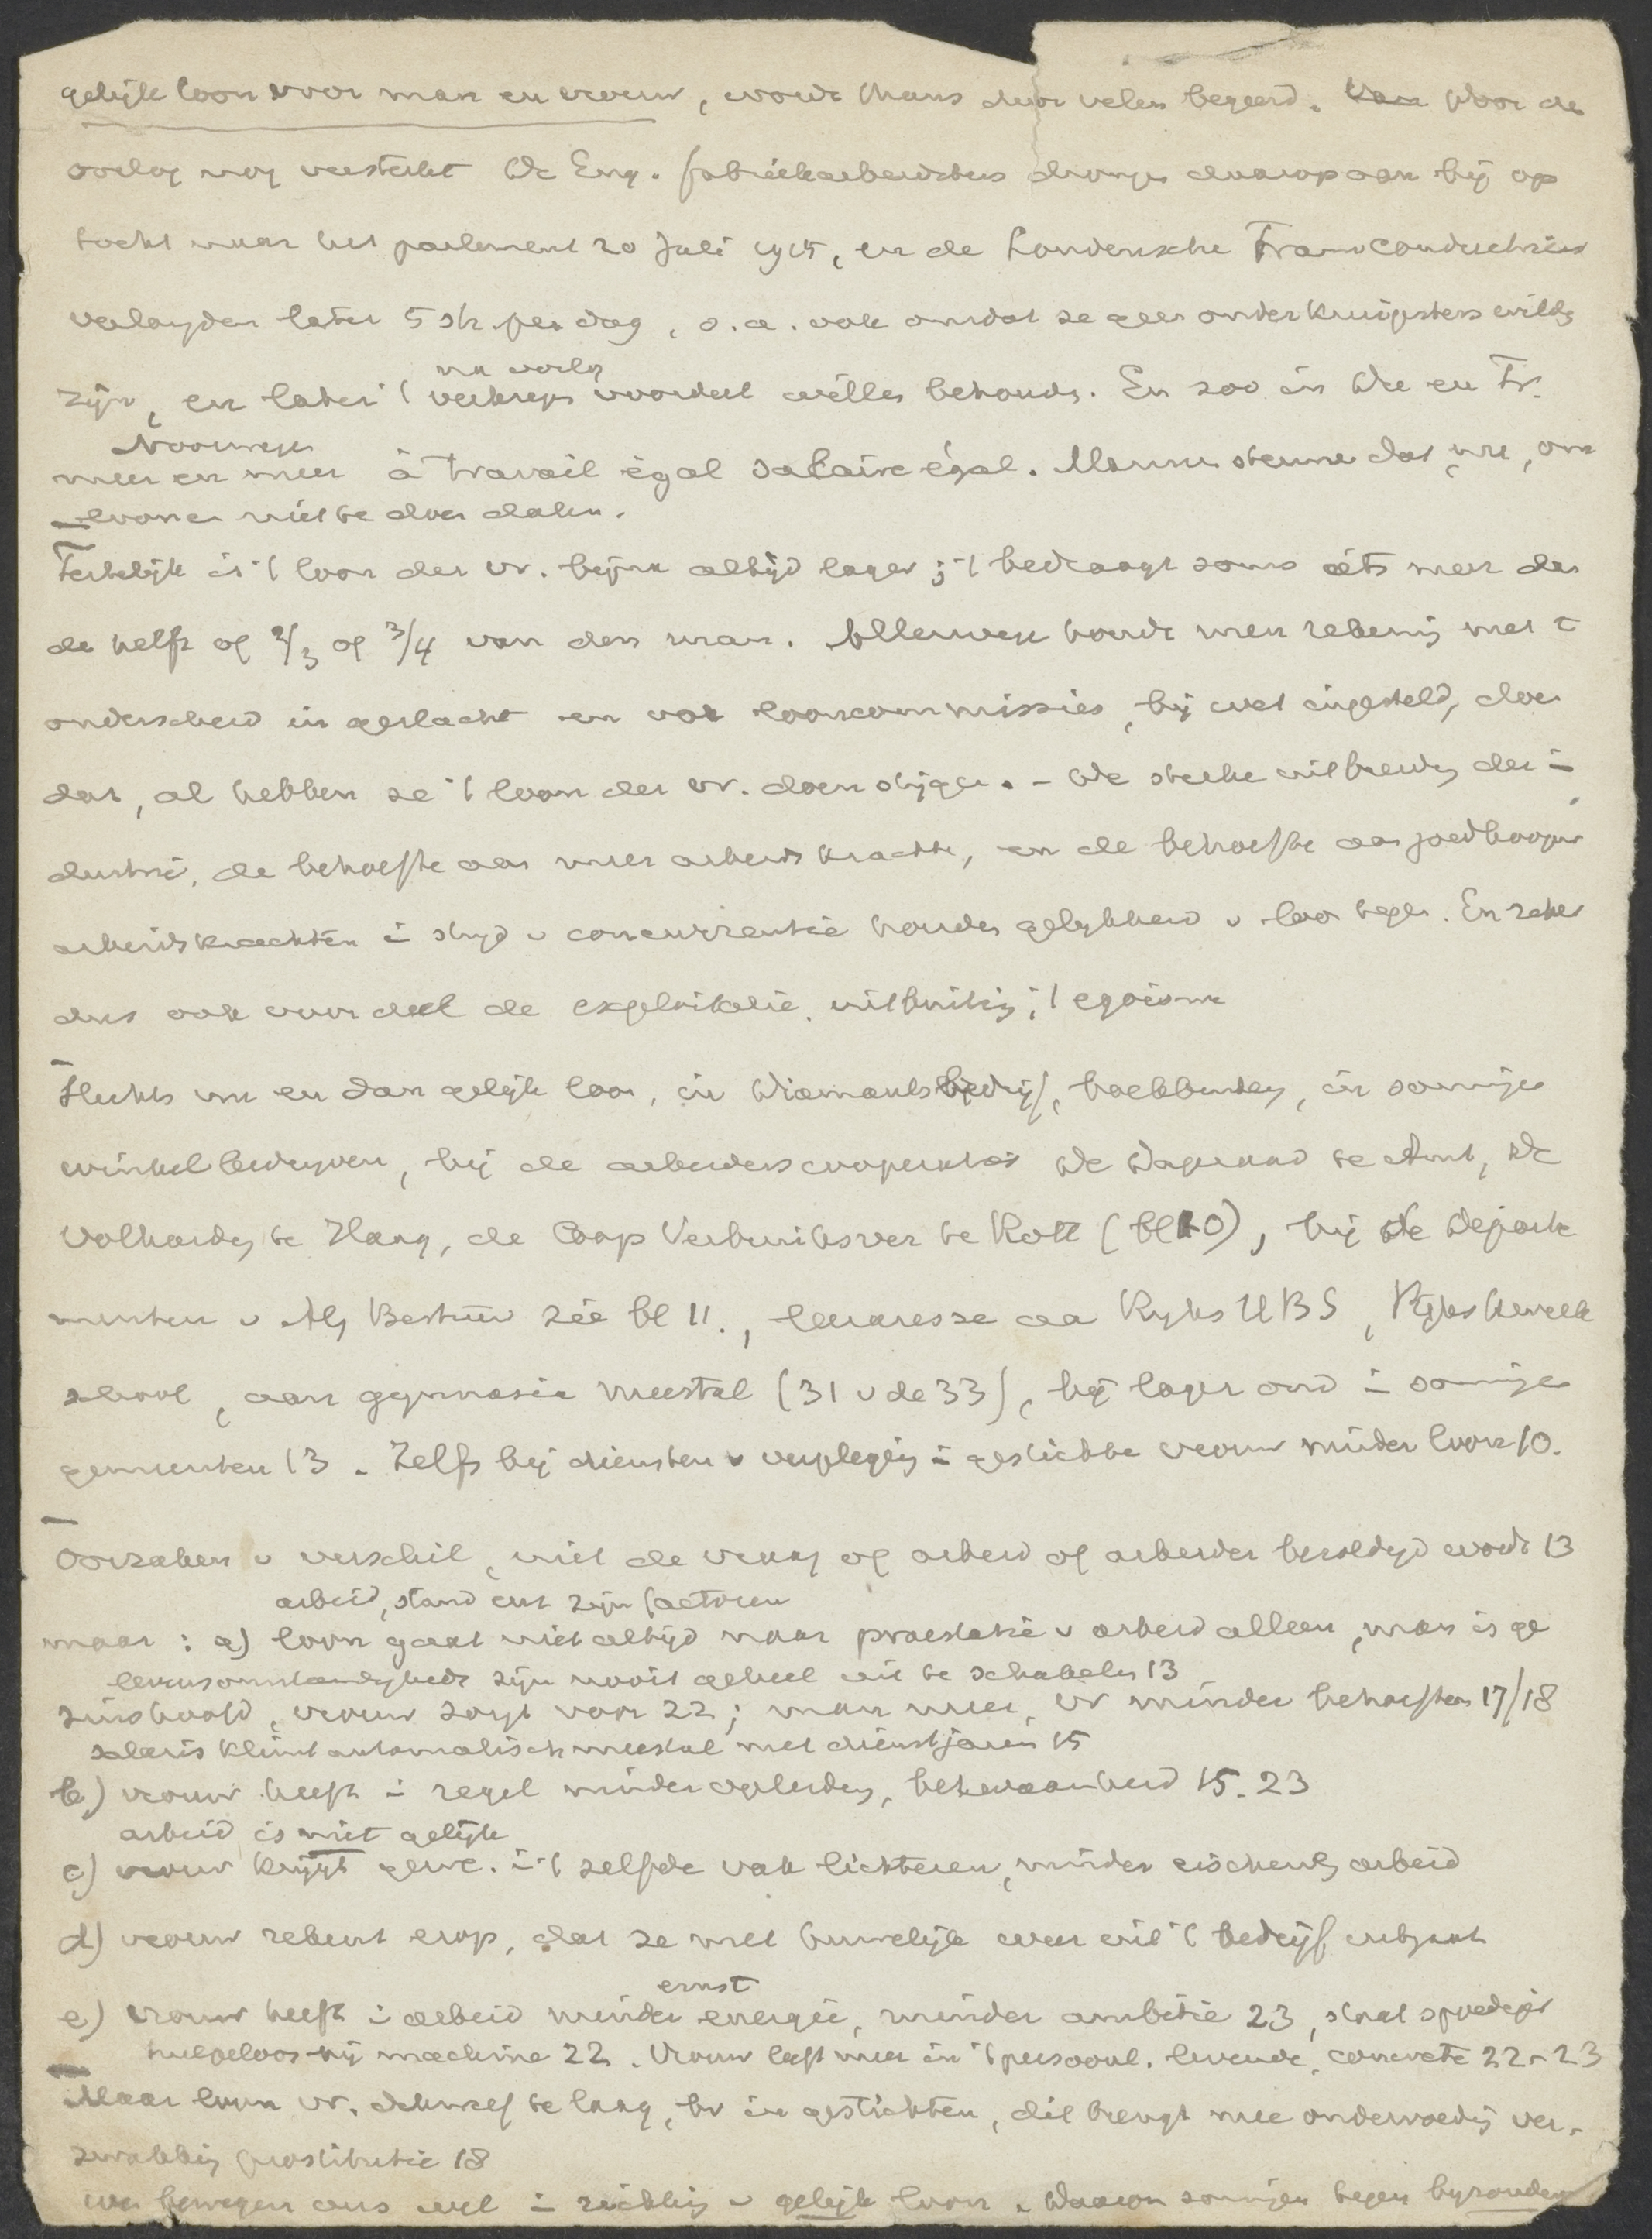 gelijk loon voor man en vrouw, wordt thans door velen begeerd. Door de
oorlog nog versterkt De Eng. fabrieksarbeidsters drongen daarop aan bij op
tocht naar het parlement 20 Juli 1915, en de Londensche Tramconductrices
verlangden later 5 sh. per dag, o.a. ook omdat ze geen onderkruipsters wilden
na oorlog
zijn, en later 't verkregen voordeel willen behouden. En zoo in De en Fr.
Noorwegen
meer en meer à travail égal salaire égal. Mannen steunen dat nu, om
loonen niet te doen dalen.
Feitelijk is 't loon der vr. bijna altijd lager; 't bedraagt soms iets meer dan
de helft of 2/3 of 3/4 van den man. Allerwege houdt men rekening met 't
onderscheid in geslacht en ook looncommissies, bij wet ingesteld, doen
dat, al hebben ze 't loon der vr. doen stijgen. - De sterke uitbreiding der in
dustrie, de behoefte aan meer arbeidskrachten, en de behoefte aan goedkoope
arbeidskrachten in strijd v concurrentie houden gelijkheid v loon tegen. En zeker
dus ook voor deel de exploitatie, uitbuiting, 't egoisme
Slechts nu en dan gelijk loon, in Diamantbedrijf, boekbinderij, in sommige
winkelbedrijven, bij de arbeiderscooperaties De Dageraad te Amst, De
Volharding te Haag, de Coop Verbruiksver te Rott (bl 10), bij de Departe
menten v Alg Bestuur zie bl 11., leerares se aan Ryks HBS, Ryks kweek
school, aan gymnasia meestal (31 v de 33), bij lager ond in sommige
gemeenten 13. Zelfs bij diensten v verpleging in gestichten vrouw minder loon 10.
Oorzaken v verschil, niet de vraag of arbeid of arbeider bezoldigd wordt 13
arbeid, stand enz zijn factoren
maar: a) loon gaat niet altijd naar praestatie v arbeid alleen, man is ge
levensomstandigheden zijn nooit geheel uit te schakelen 13
zinshoofd, vrouw zorgt voor 22; man meer, vr minder behoeften 17/18
salaris klimt automatisch meestal met dienstjaren 15
b) vrouw heeft in regel minder opleiding, bekwaamheid 15. 23
arbeid is niet gelijk
c) vrouw krijgt gew. in 't zelfde vak lichteren, minder eischende arbeid
d) vrouw rekent erop, dat ze met huwelijk weer uit 't bedrijf uitgaat
ernst
e) vrouw heeft in arbeid minder energie, minder ambitie 23, staat spoediger
hulpeloos bij machine 22. Vrouw leeft meer in 't persoonl. levende, concrete 22-23
Maar loon vr. dikwijls te laag, bv in gestichten, dit brengt mee ondervoeding ver-
zwakking prostitutie 18
We bewegen ons wel in richting v gelijk loon. Daarom sommigen tegen byzondere